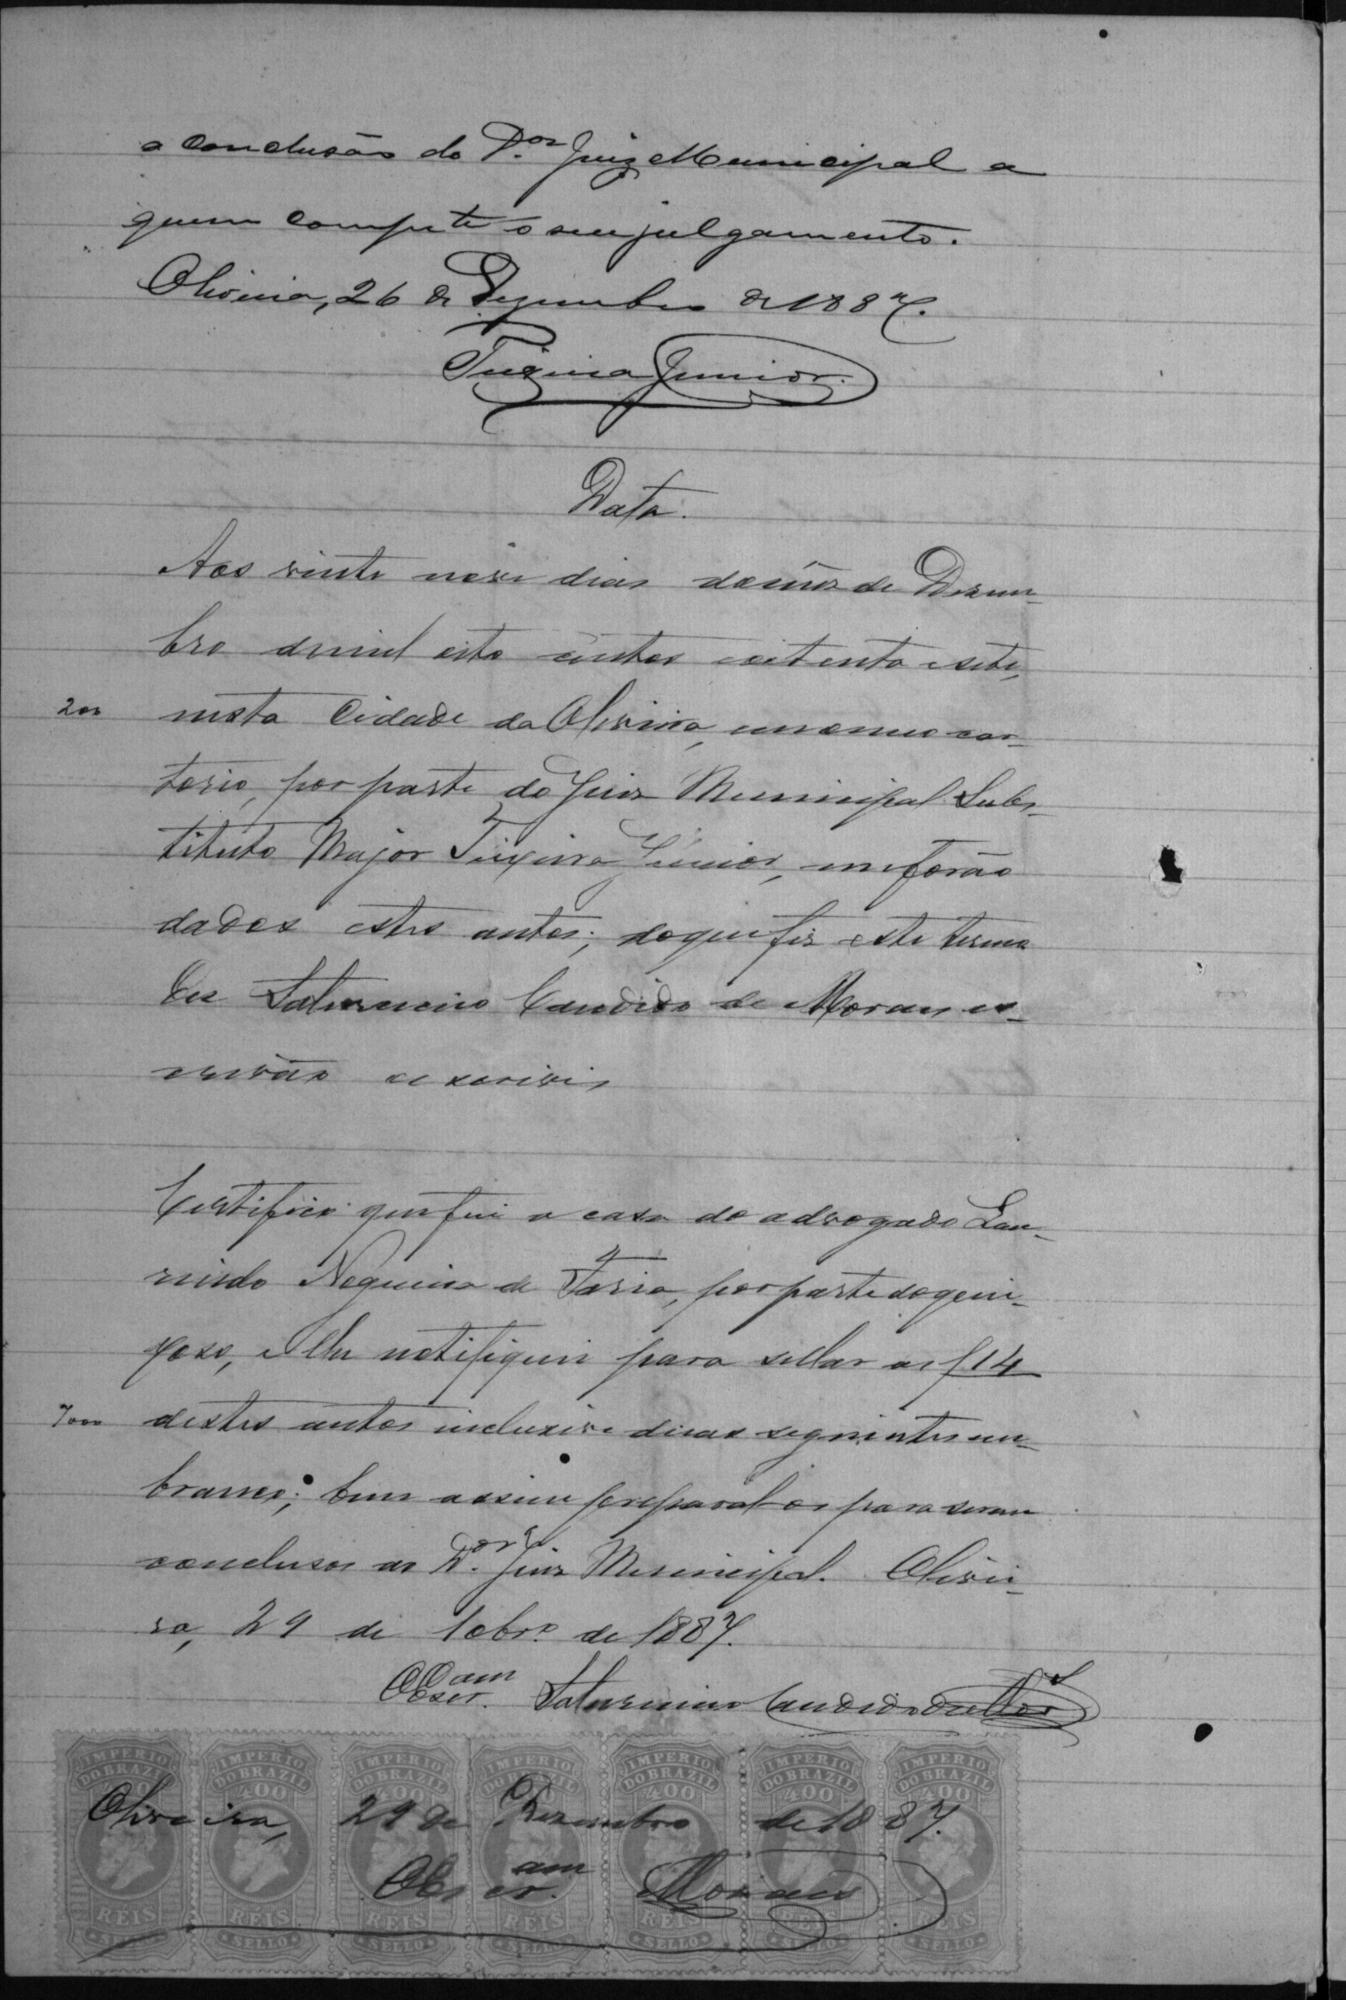 a conclusão do D.or Juiz Municipal a
quem compete o seu julgamento.
Oliveira, 26 de Dezembro de 1887.
Teixeira Junior.
Data.
Aos vinte nove dias do mez de Dezem-
bro de mil oito centos e oitenta e sete,
200 nesta Cidade da Oliveira, em o meu car-
torio, por parte do Juiz Municipal Subs-
tituto Major Teixeira Junior, me forão
dados estes autos; do que fiz este termo
Eu Saturnino Candido de Moraes es-
crivão o escrivi
Certifico que fui a casa do advogado Lau-
rindo Nogueira de Faria, por parte do quei-
xoso, e lhe notifiquei para sellar as f 14
7000 destes autos inclusive duas seguintes em
branco; bem assim preparal-os para serem
conclusos ao D.or Juiz Municipal. Olivei-
ra, 29 de 10br.o de 1887.
O Escr.am Saturnino Candido de Mor.s
IMPERIO DO BRAZIL 400 RÉIS SELLO
IMPERIO DO BRAZIL 400 RÉIS SELLO
IMPERIO DO BRAZIL 400 RÉIS SELLO
IMPERIO DO BRAZIL 400 RÉIS SELLO
IMPERIO DO BRAZIL 400 RÉIS SELLO
IMPERIO DO BRAZIL 400 RÉIS SELLO
IMPERIO DO BRAZIL 400 RÉIS SELLO
Oliveira, 29 de Dezembro de 1887.
O Escr.am Moraes